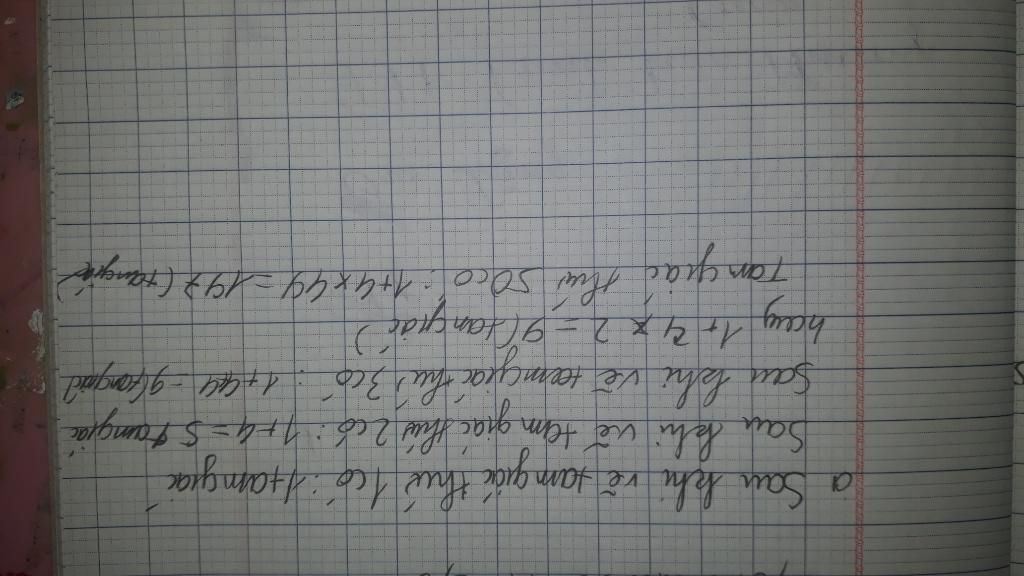 a Sau khi vẽ tam giác thứ 1 có : 1 tam giác
Sau khi vẽ tam giác thứ 2 có : 1+4 = 5 tam giác
Sau khi vẽ tam giác thứ 3 có : 1+4+4 = 9 (tam giác)
hay 1+4 x 2 = 9 (tam giác)
Tam giác thứ 50 có : 1+4x49 = 197 (tam giác)